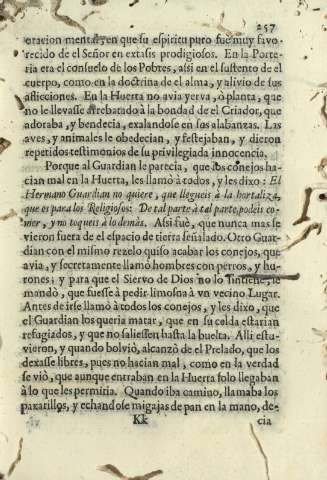 257
oracion mental, en que su espiritu puro fue muy favo-
recido de el Señor en extasis prodigiosos. En la Porte-
ria era el consuelo de los Pobres, assi en el sustento de el
cuerpo, como en la doctrina de el alma, y alivio de sus
aflicciones. En la Huerta no avia yerva, ò planta, que
no le llevasse arrebatado à la bondad de el Criador, que
adoraba, y bendecia, exalandose en sus alabanzas. Las
aves, y animales le obedecian, y festejaban, y dieron
repetidos testimonios de su privilegiada innocencia.
Porque al Guardian le parecia, que los conejos ha-
cian mal en la Huerta, les llamò à todos, y les dixo: El
Hermano Guardian no quiere, que llegueis à la hortaliza,
que es para los Religiosos: De tal parte à tal parte podeis co-
mer, y no toqueis à lo demàs. Assi fuè, que nunca mas se
vieron fuera de el espacio de tierra señalado. Otro Guar-
dian con el mismo rezelo quiso acabar los conejos, que
avia, y secretamente llamò hombres con perros, y hu-
rones; y para que el Siervo de Dios no lo le
mandò, que fuesse à pedir limosna à vn vecino Lugar.
Antes de irse llamò à todos los conejos, y les dixo, que
el Guardian los queria matar, que en su celda estarian
refugiados, y que no saliessen hasta la buelta. Alli estu-
vieron, y quando bolviò, alcanzò de el Prelado, que los
dexasse libres, pues no hacian mal, como en la verdad
se viò, que aunque entraban en la Huerta solo llegaban
à lo que les permitia. Quando iba camino, llamaba los
paxarillos, y echandose migajas de pan en la mano, de-
Kk
cia